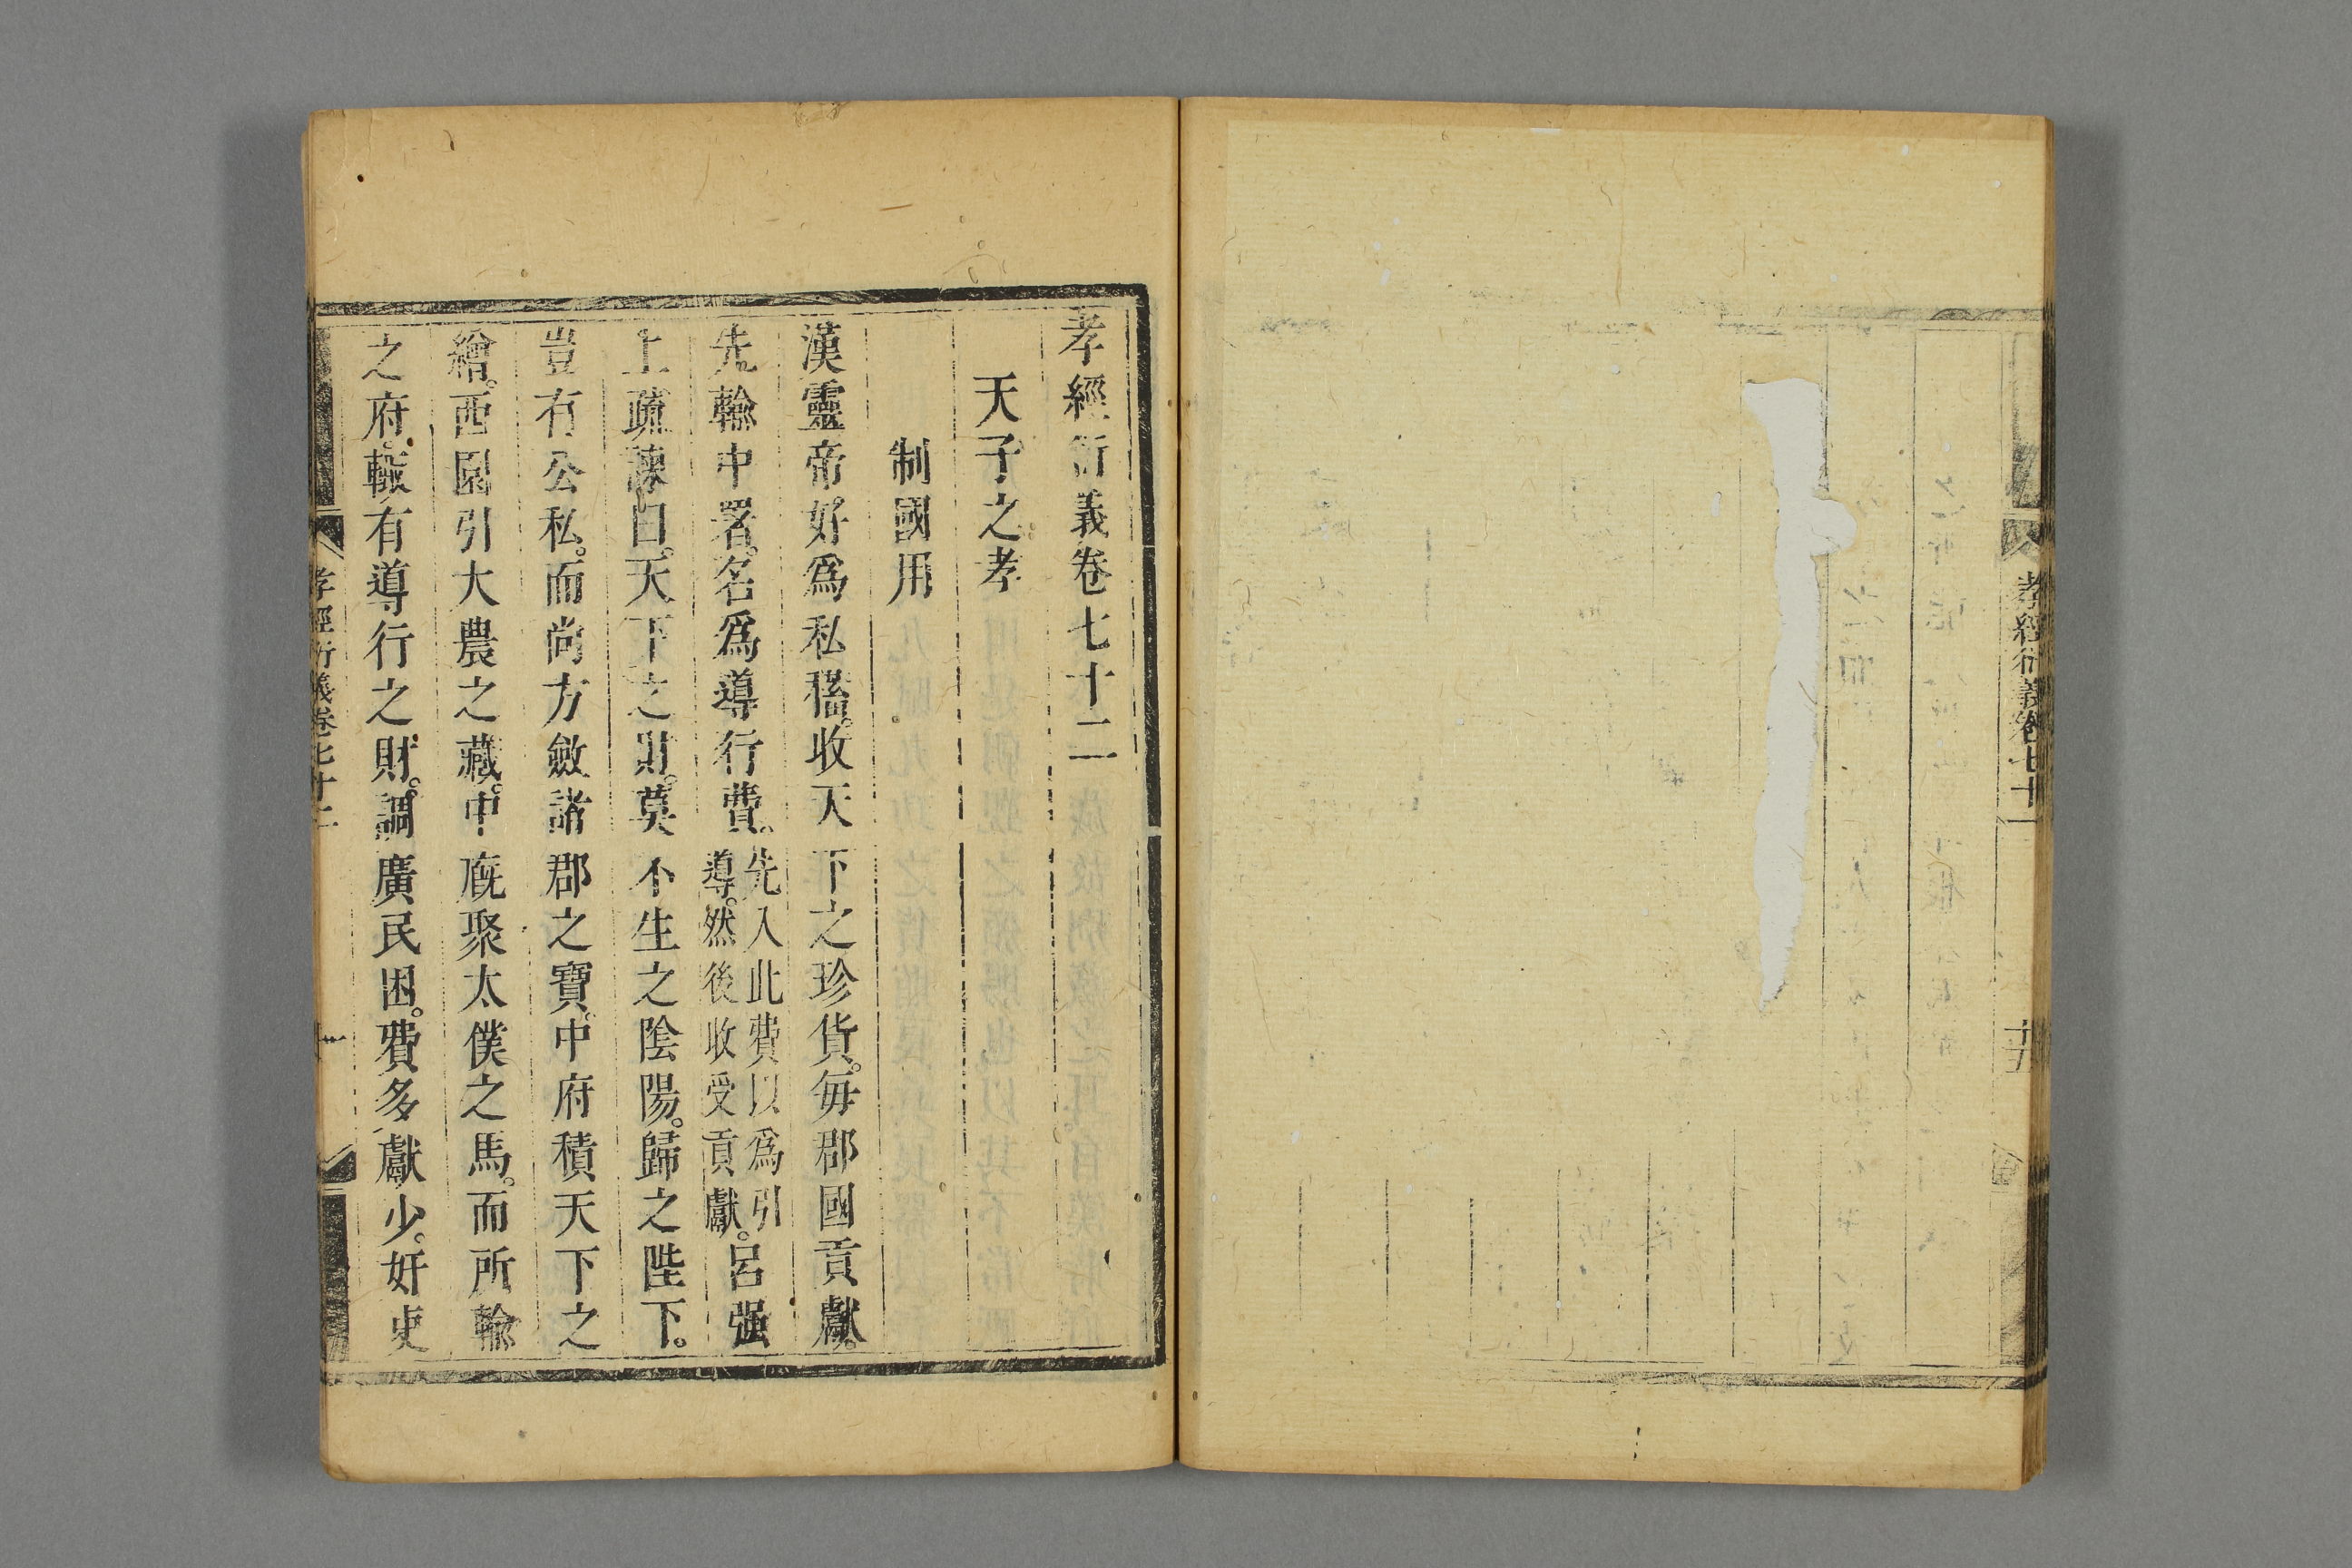 孝經衍義卷七十一
十五
孝經衍義卷七十二
天子之孝
制國用
漢靈帝好爲私稸。收天下之珍貨。毎郡國貢獻。
先輸中署。名爲導行費。先入此費以爲引
導。然後收受貢獻。呂强
上疏諫曰。天下之財。莫不生之陰陽。歸之陛下。
豈有公私。而尚方斂諸郡之寶。中府積天下之
繒。西園引大農之藏。中廐聚太僕之馬。而所輸
之府。輒有導行之財。調廣民困。費多獻少。奸吏
孝經衍義卷七十二
一